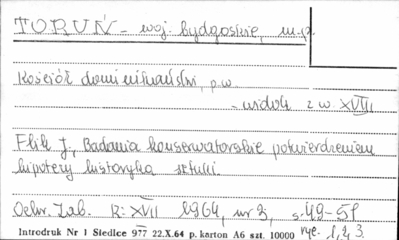 TORUŃ - woj. bydgoskie, m.p.
Kościół dominikański, p.w
- widok z w. XVIII
Flik J., Badania konserwatorskie potwierdzeniem
hipotezy historyka sztuki.
Ochr. Zab. R: XVII 1964, nr 3, s. 49-51
ryc. 1, 2, 3.
Introdruk Nr 1 Siedlce 977 22.X.64 p. karton A6 szt. 10000